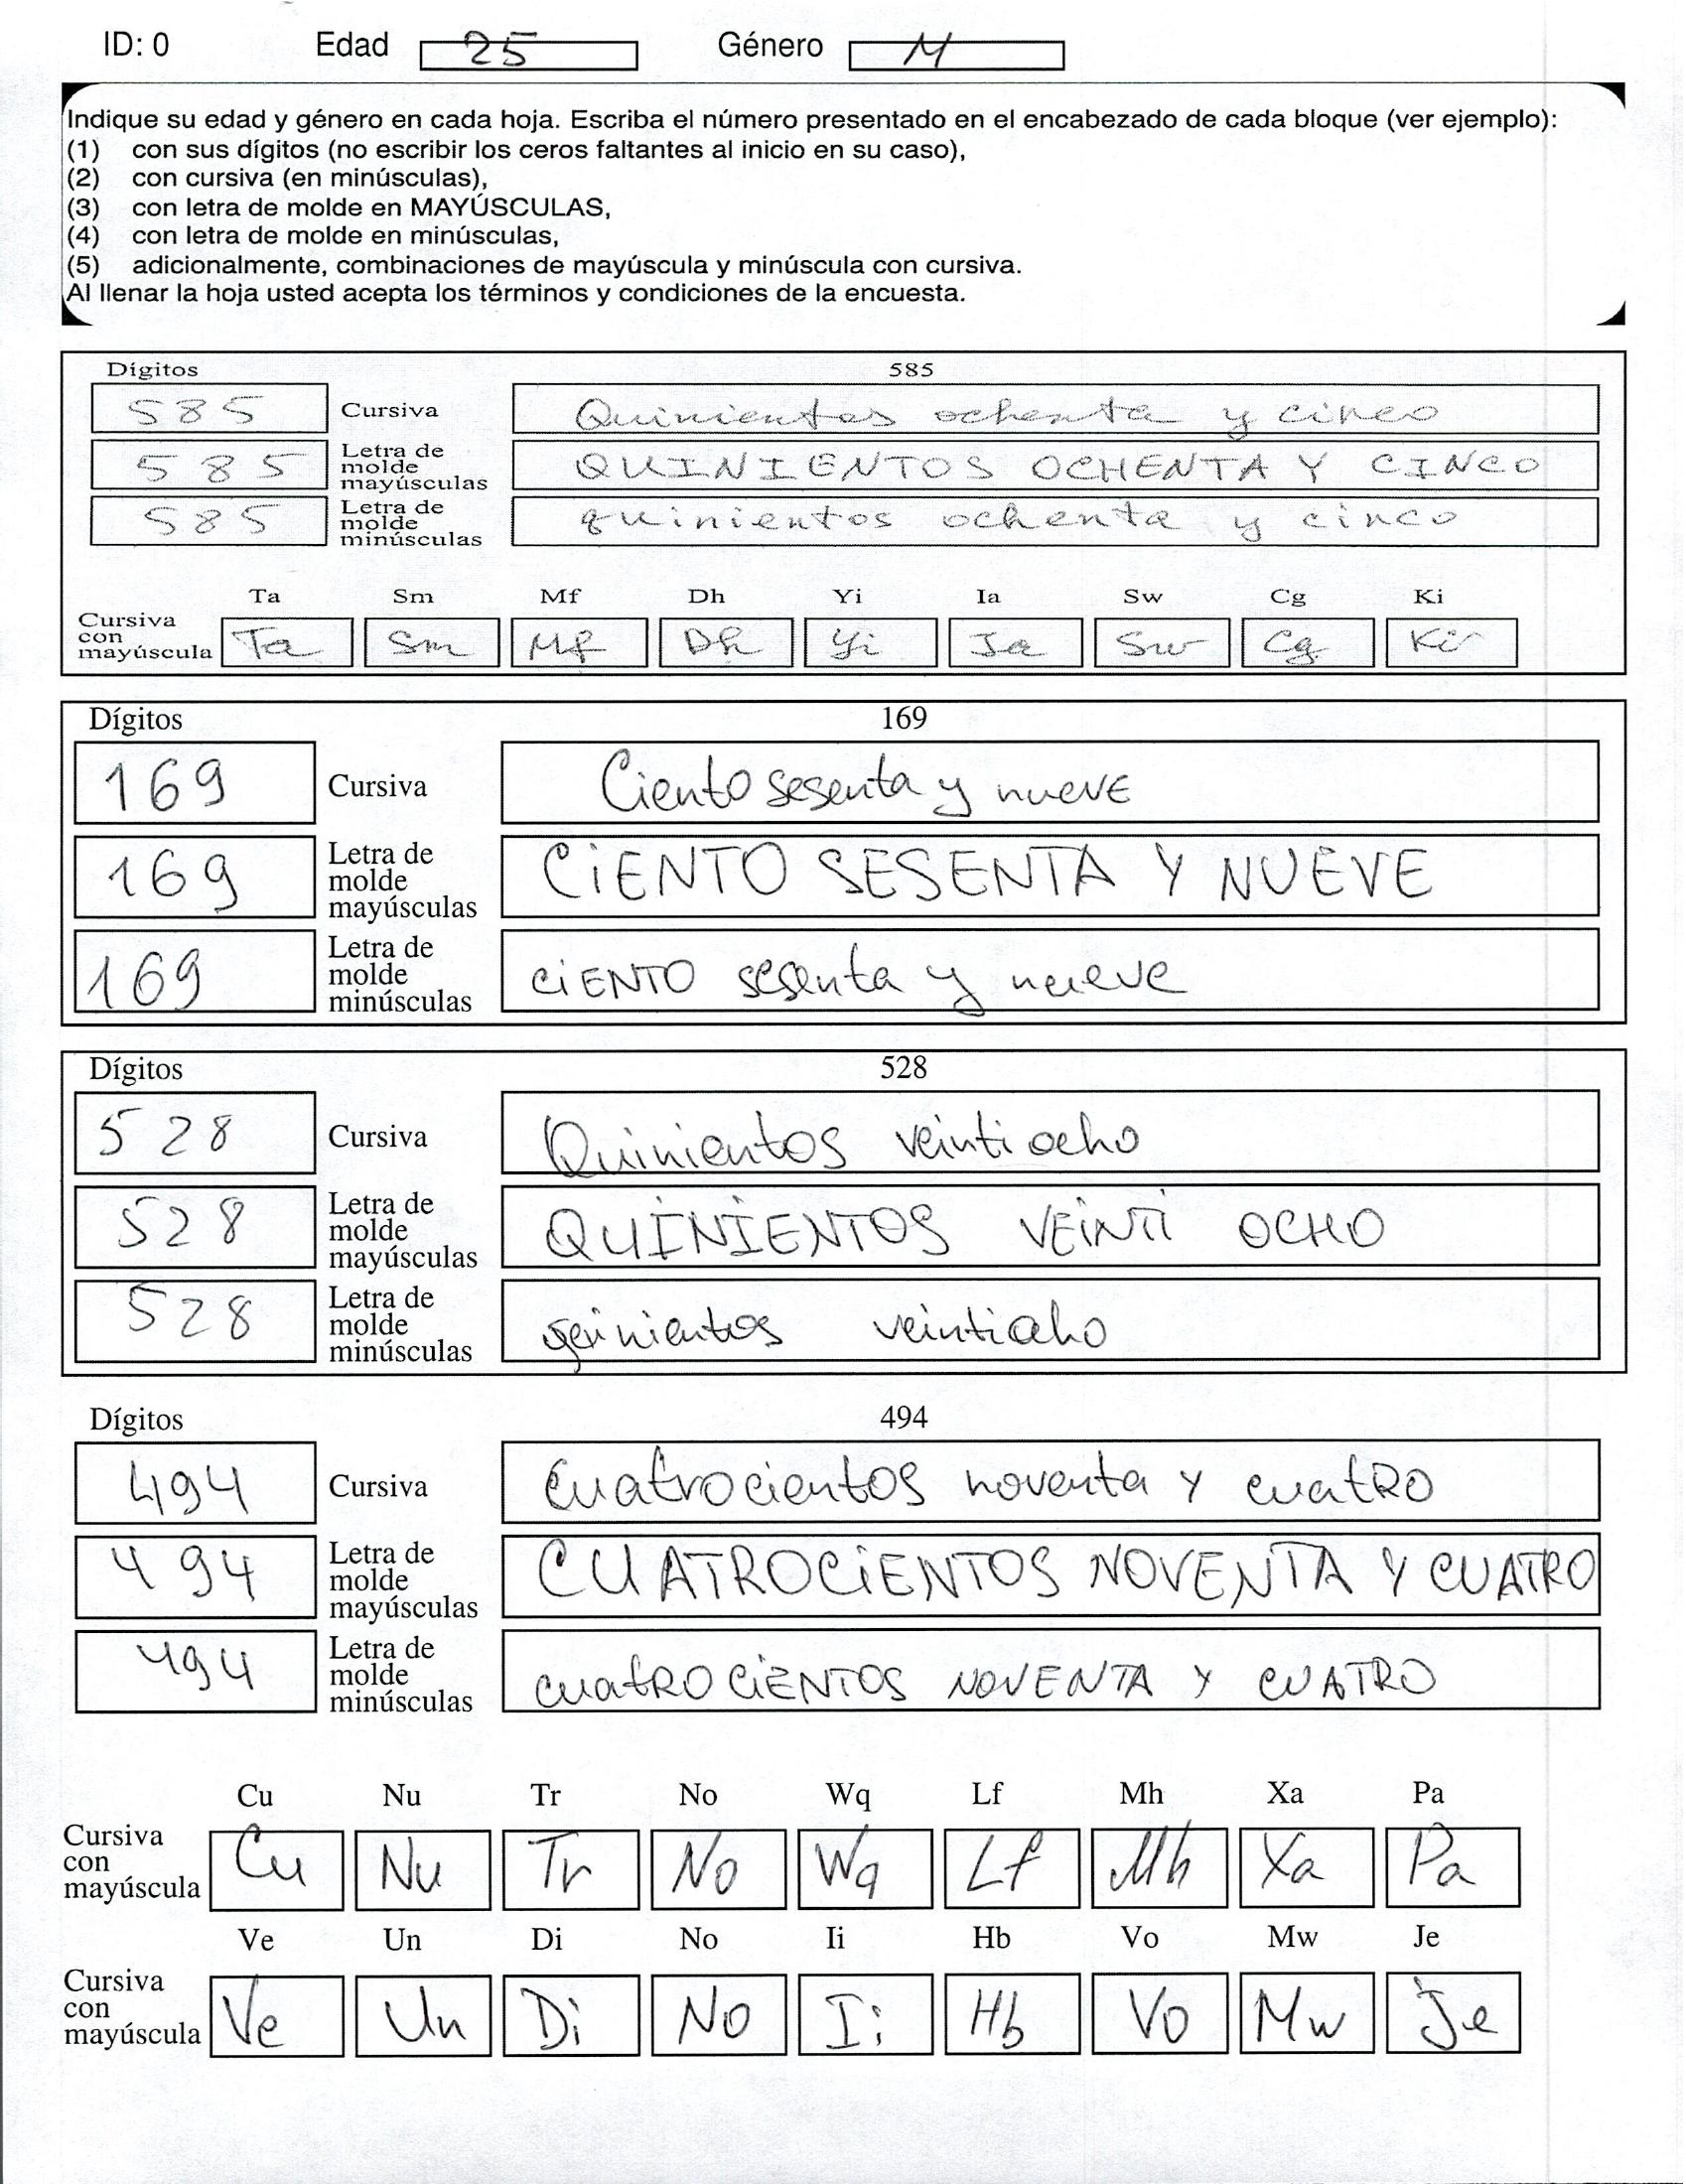 ID: 0 Edad 25 Género M
Indique su edad y género en cada hoja. Escriba el número presentado en el encabezado de cada bloque (ver ejemplo):
(1) con sus dígitos (no escribir los ceros faltantes al inicio en su caso),
(2) con cursiva (en minúsculas),
(3) con letra de molde en MAYÚSCULAS,
(4) con letra de molde en minúsculas,
(5) adicionalmente, combinaciones de mayúscula y minúscula con cursiva.
Al llenar la hoja usted acepta los términos y condiciones de la encuesta.
Dígitos 585
585 Cursiva Quinientos ochenta y cinco
585 Letra de molde mayúsculas QUINIENTOS OCHENTA Y CINCO
585 Letra de molde minúsculas quinientos ochenta y cinco
Ta Sm Mf Dh Yi Ia Sw Cg Ki
Cursiva con mayúscula Ta Sm Mf Dh Yi Ia Sw Cg Ki
Dígitos 169
169 Cursiva Ciento sesenta y nuevE
169 Letra de molde mayúsculas CiENTO SESENTA Y NUEVE
169 Letra de molde minúsculas ciENTO sesenta y nueve
Dígitos 528
528 Cursiva Quinientos veinti ocho
528 Letra de molde mayúsculas QUINIENTOS VEiNTi OCHO
528 Letra de molde minúsculas quinientos veintiocho
Dígitos 494
494 Cursiva Cuatrocientos noventa y cuatRO
494 Letra de molde mayúsculas CUATROCiENTOS NOVENTA Y CUATRO
494 Letra de molde minúsculas cuatRO CiENTOS NOVENTA Y CUATRO
Cu Nu Tr No Wq Lf Mh Xa Pa
Cursiva con mayúscula Cu Nu Tr No Wq Lf Mh Xa Pa
Ve Un Di No Ii Hb Vo Mw Je
Cursiva con mayúscula Ve Un Di No Ii Hb Vo Mw Je